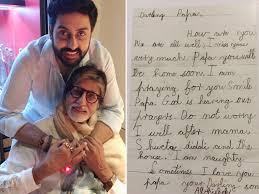 Darling Papa,
How are you
We are all well, I miss you
very much. Papa you will
be home soon. I am
praying for you Smile
Papa. God is hearing our
prayers. Do not worry
I will after mama.
Shweta diddi and the
house. I am naughty
sometimes. I love you
papa your Darling son
Abhishek